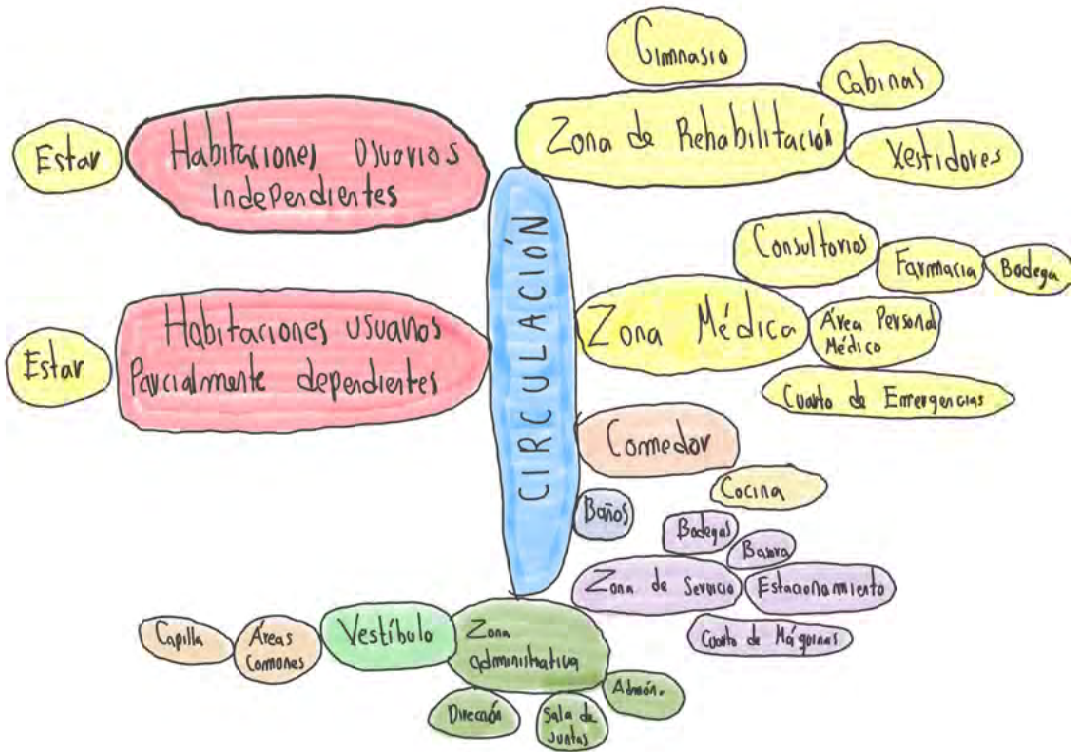 Gimnasio
Cabinas
Zona de Rehabilitación
Vestidores
Estar
Habitaciones Usuarios
Independientes
CIRCULACIÓN
Consultorios
Farmacia
Bodega
Zona Médica
Área Personal
Médico
Cuarto de Emergencias
Estar
Habitaciones usuarios
Parcialmente dependientes
Comedor
Cocina
Baños
Bodegas
Basura
Zona de Servicio
Estacionamiento
Cuarto de Máquinas
Capilla
Áreas
Comunes
Vestíbulo
Zona
administrativa
Dirección
Sala de
juntas
Admón.